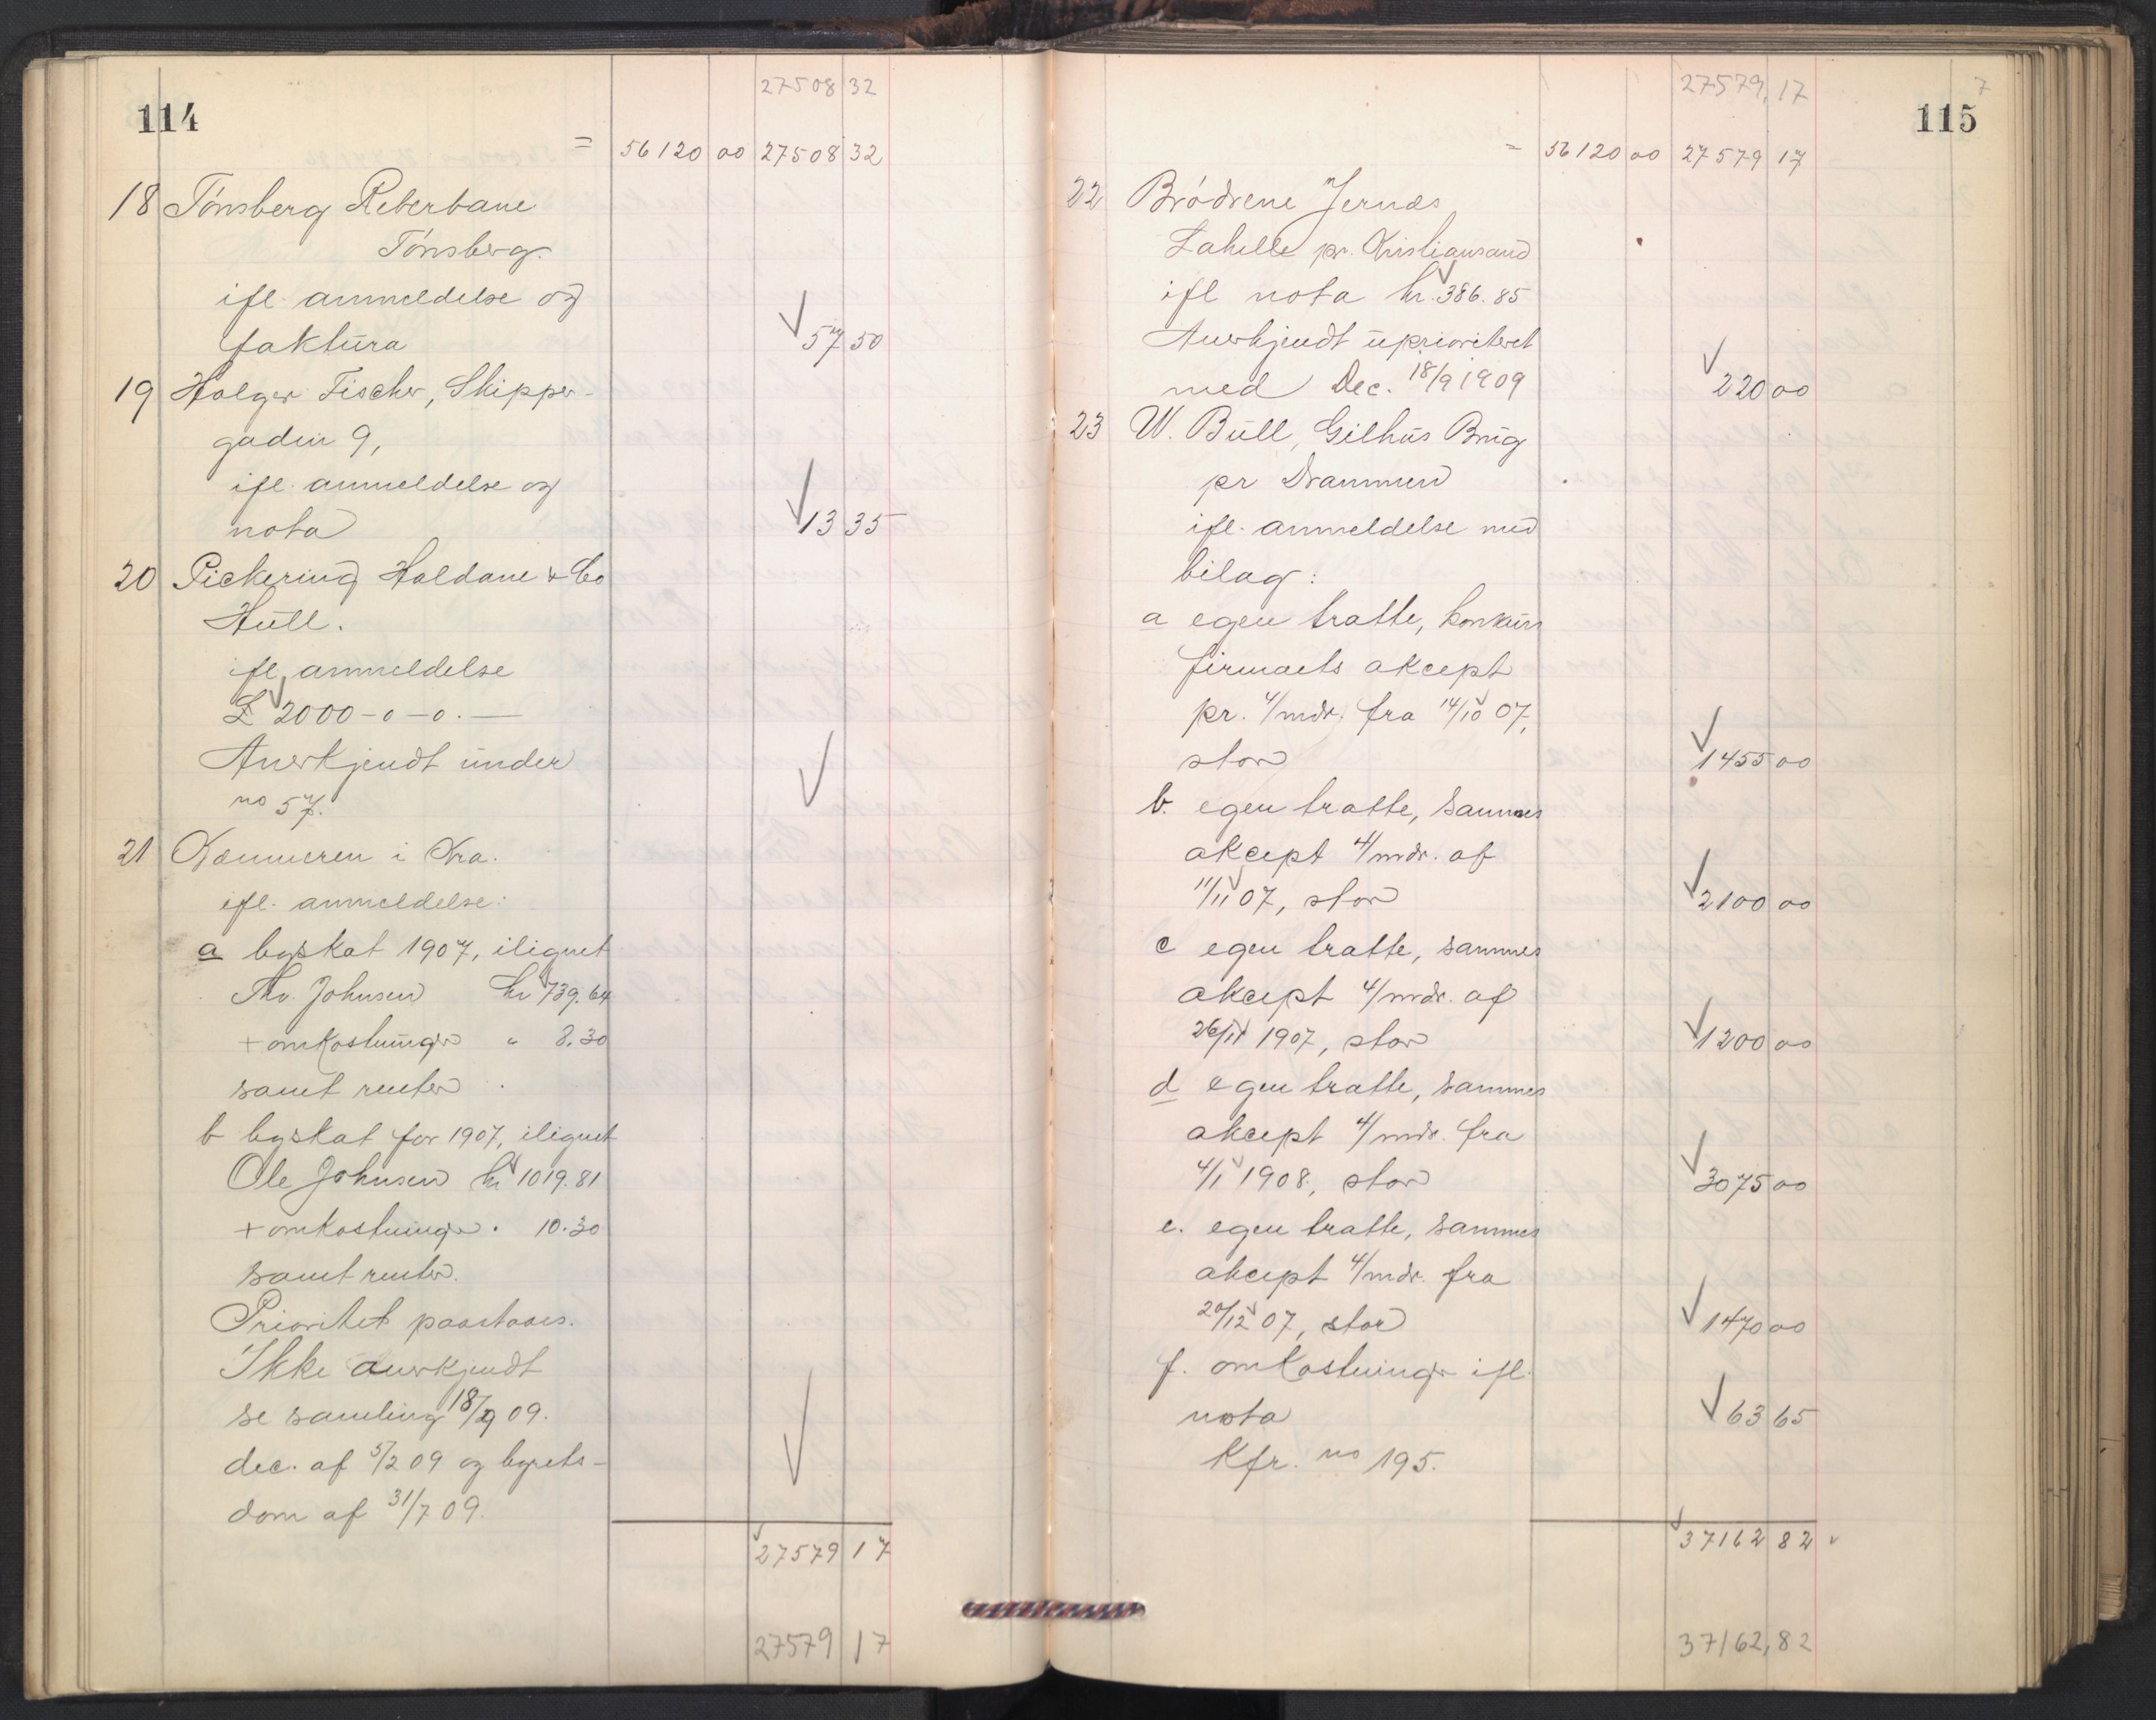 27508 32
114
= 56120 00 27508 32
18 Tønsberg Reberbane
Tønsberg.
ifl. anmeldelse og
faktura 57 50
19 Holger Fischer, Skipper-
gaden 9,
ifl. anmeldelse og
nota 13 35
20 Pickering Haldane & Co
Hull.
ifl. anmeldelse
£ 2000-0-0.—
Anerkjendt under
no 57.
21 Kæmneren i Kra.
ifl. anmeldelse:
a byskat 1907, ilignet
Thv. Johnsen kr 739.64
+ omkostninger " 8.30
samt renter
b byskat for 1907, ilignet
Ole Johnsen kr 1019.81
+ omkostninger . 10.30
samt renter.
Prioritet paastaaes.
Ikke anerkjendt
se samling 18/9 09.
dec. af 5/2 09 og byrets-
dom af 31/7 09.
27579 17
27579 17
27579,17 7
115
= 56120 00 27579 17
22 Brødrene Jernæs
Lahelle pr. Kristiansand
ifl nota kr. 386.85
Anerkjendt uprioriteret
med Dec. 18/9 1909 220 00
23 W. Bull, Gilhus Brug
pr Drammen
ifl. anmeldelse med
bilag:
a egen tratte, konkurs
firmaets akcept
pr. 4/mdr. fra 14/10 07,
stor 1455 00
b. egen tratte, sammes
akcept 4/mdr. af
11/11 07, stor 2100 00
c egen tratte, sammes
akcept 4/mdr. af
26/11 1907, stor 1200 00
d egen tratte, sammes
akcept 4/mdr. fra
4/1 1908, stor 3075 00
e. egen tratte, sammes
akcept 4/mdr. fra
20/12 07, stor 1470 00
f. omkostninger ifl.
nota 63 65
Kfr. no 195.
37162 82
37162,82